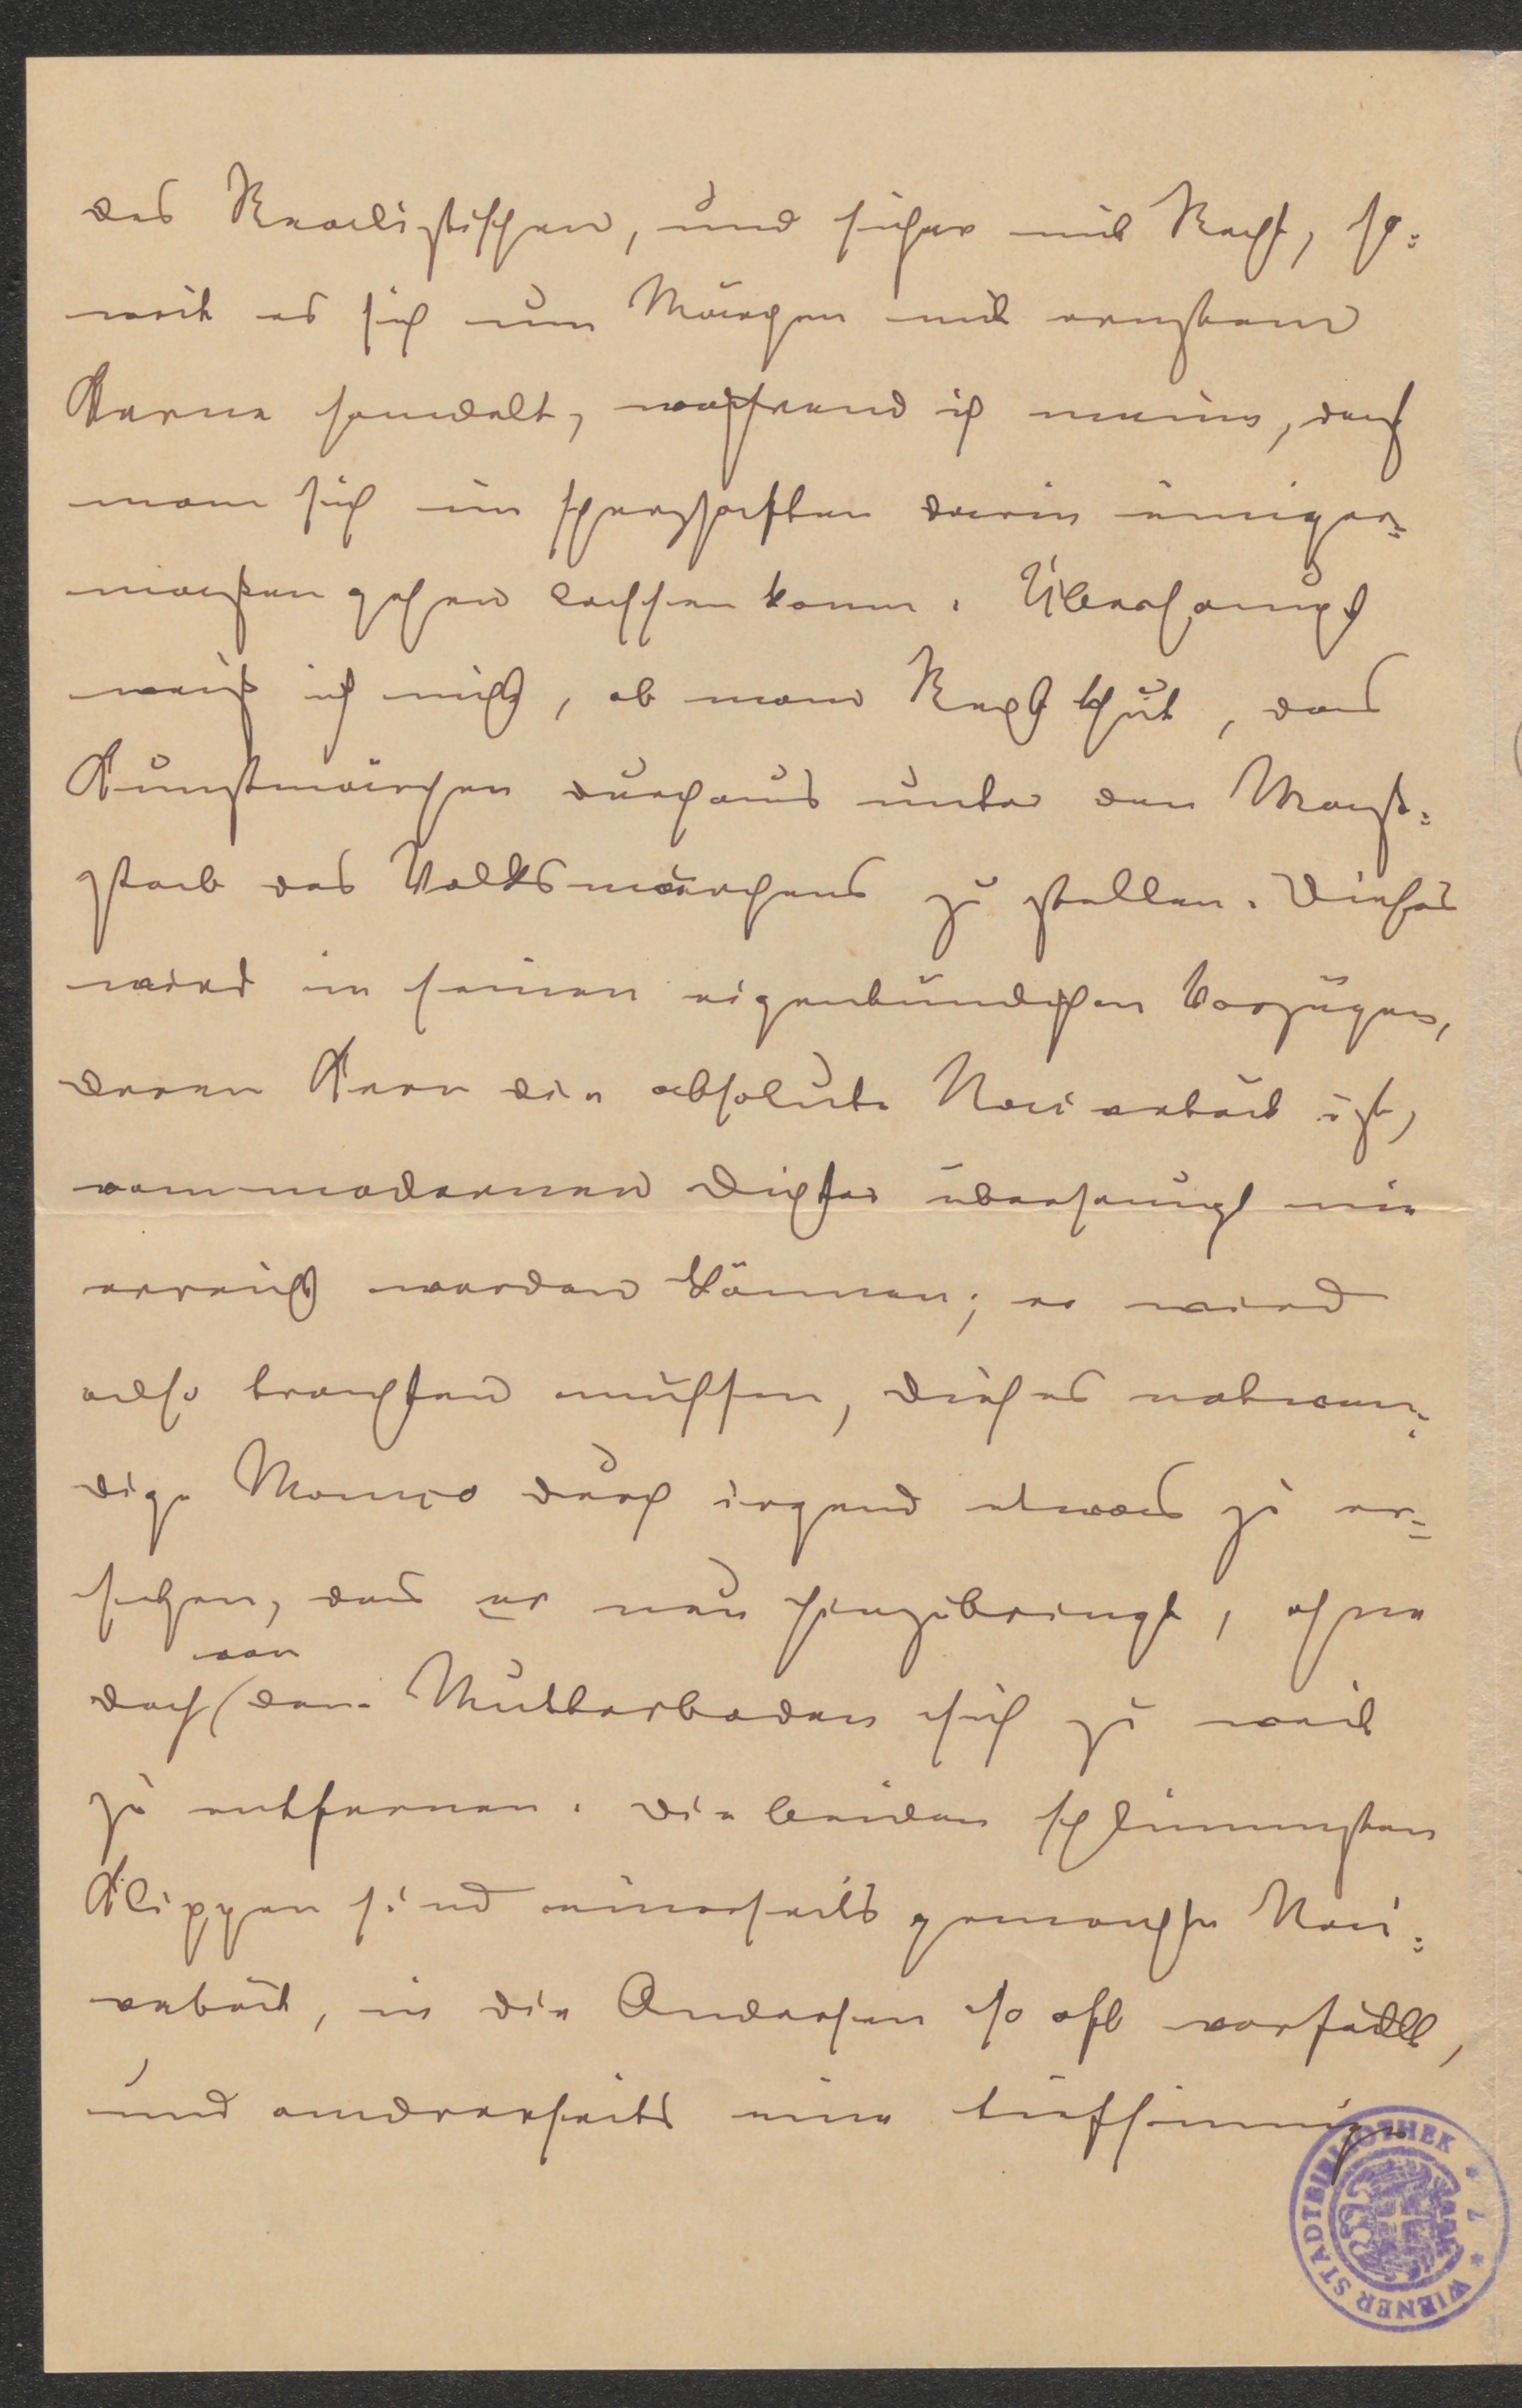 des Realistischen, und sicher mit Recht, so=
weit es sich um Märchen mit ernstem
Kerne handelt, während ich meine, daß
man sich im scherzhaften darin einiger=
maßen gehen lassen kann. Überhaupt
weiß ich nicht, ob man Recht thut, das
Kunstmärchen durchaus unter den Maß=
stab des Volksmärchens zu stellen. Dieses
wird in seinen eigentümlichen Vorzügen,
deren Kern die absolute Naivetät ist,
vom modernen Dichter überhaupt nie
erreicht werden können; er wird
also trachten müssen, dieses notwen=
dige Manco durch irgend etwas zu er=
setzen, das er neu hinzubringt, ohne
doch von dem Mutterboden sich zu weit
zu entfernen. Die beiden schlimmsten
Klippen sind einerseits gemachte Nai=
vetät, in die Andersen so oft verfällt,
und andrerseits eine tiefsinnige
WIENER STADTBIBLIOTHEK